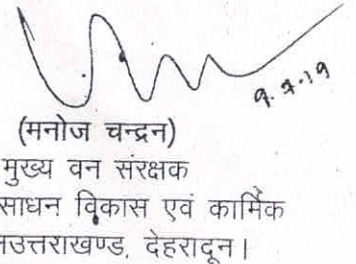 9.7.19
(मनोज चन्द्रन)
मुख्य वन संरक्षक
साधन विकास एवं कार्मिक
उत्तराखण्ड, देहरादून।